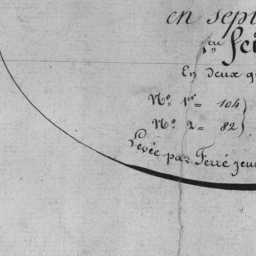 en sept
En deux
N.º 1.re = 104
N.º 2 = 82
Levée par Ferré jeu